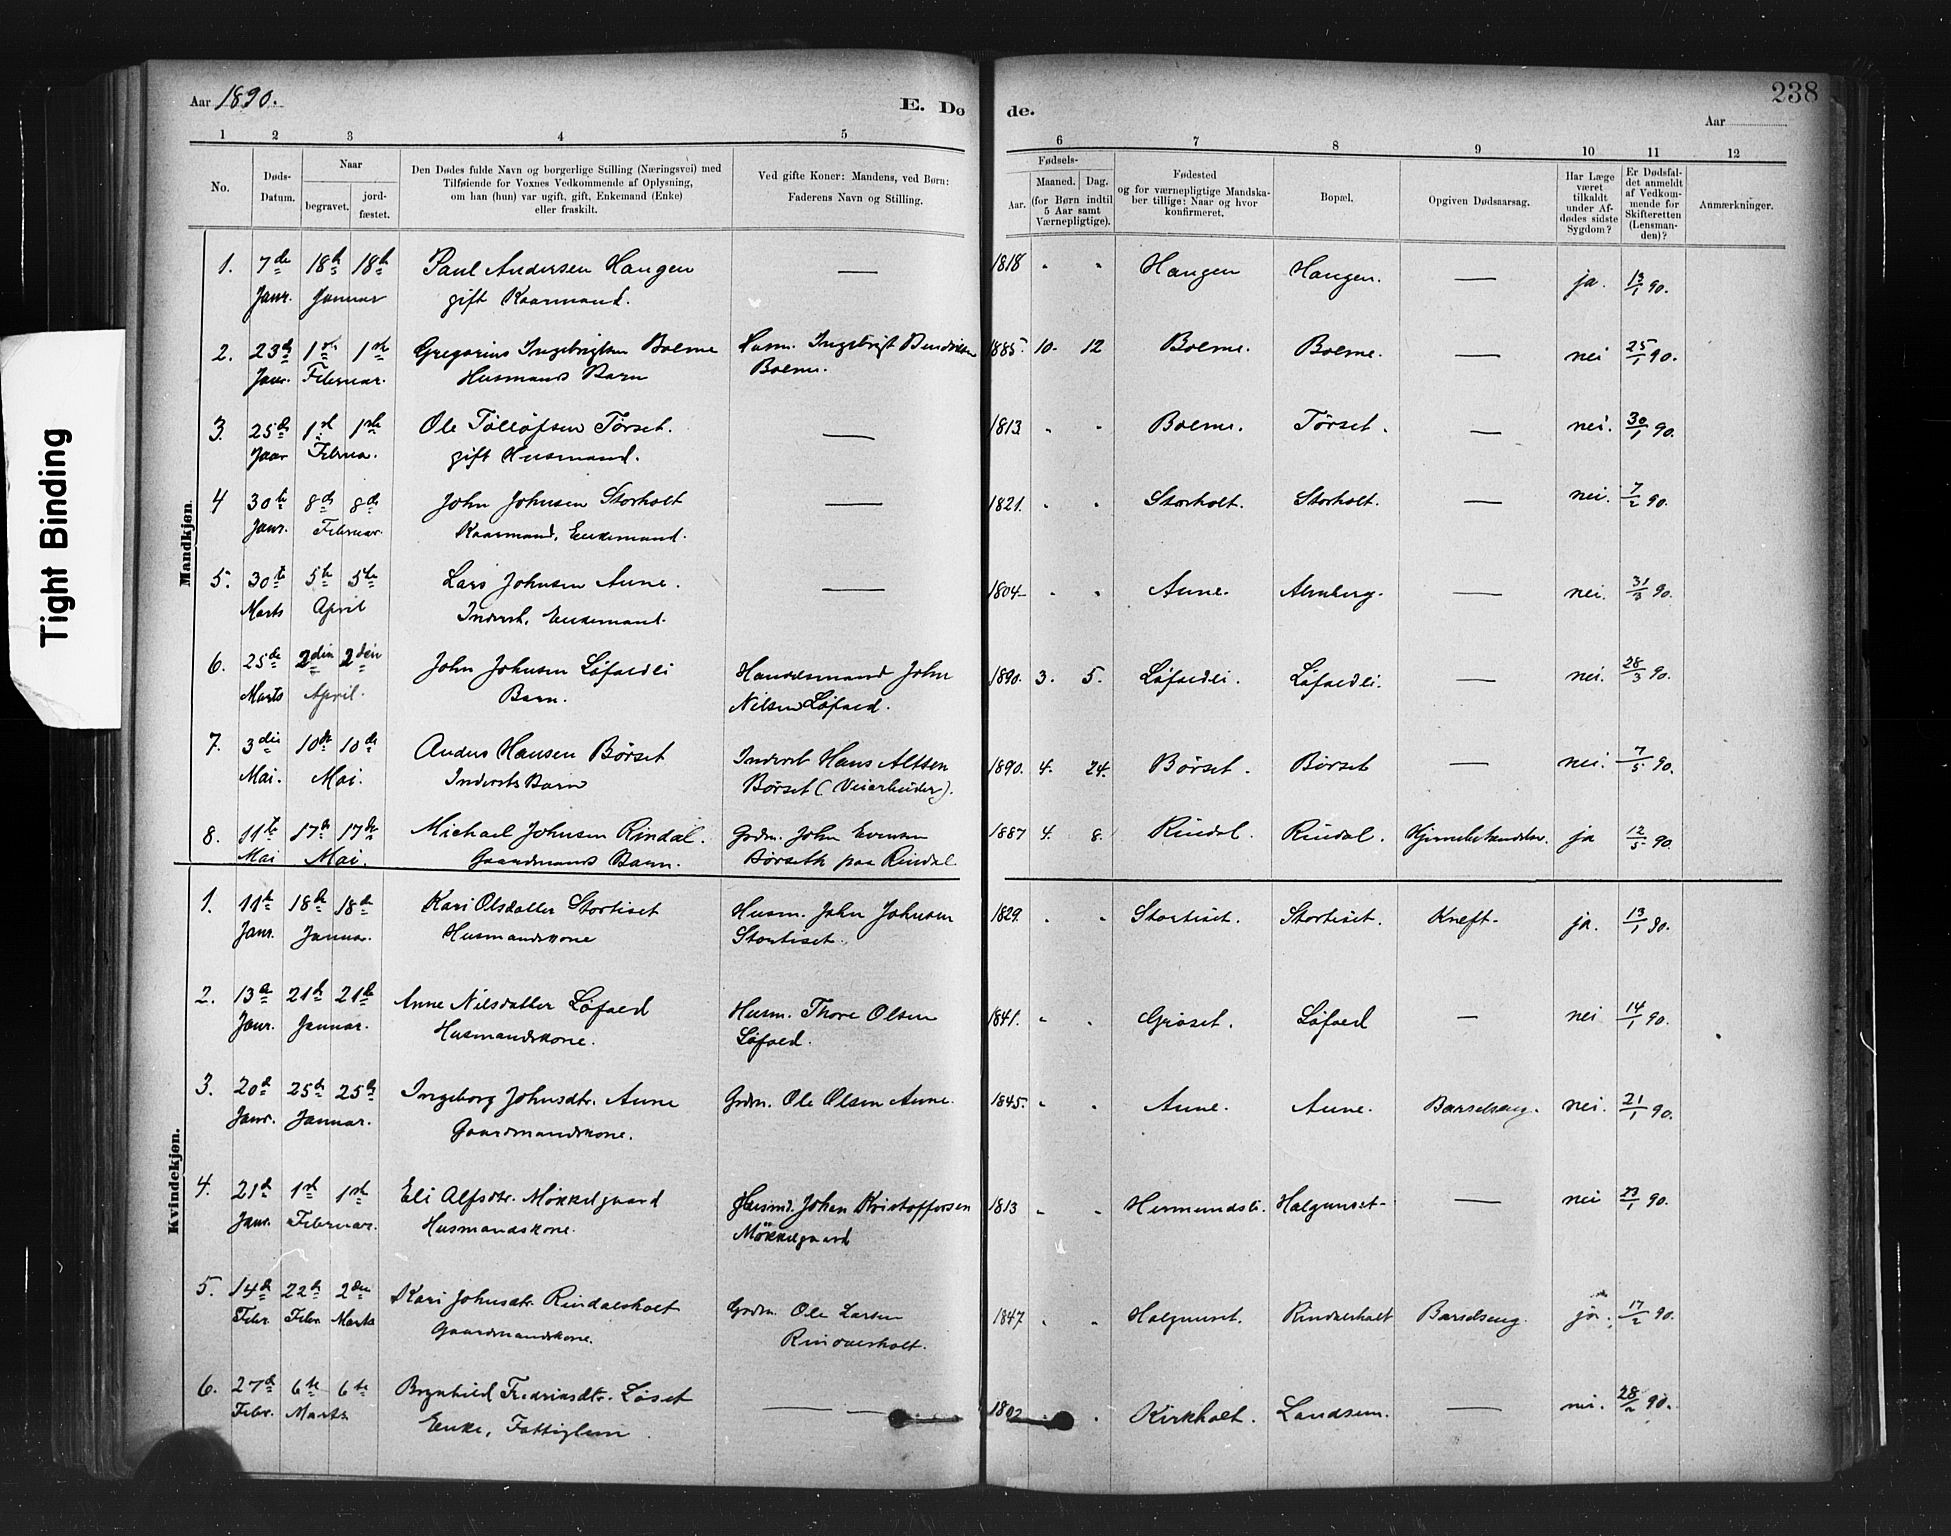 Tight Binding
Aar 1890.
E. Do
de.
238
Aar
1 2 3 4 5 6 7 8 9 10 11 12
No.
Døds-
Datum.
Naar
begravet.
jord-
fæstet.
Den Dødes fulde Navn og borgerlige Stilling (Næringsvei) med
Tilføiende for Voxnes Vedkommende af Oplysning,
om han (hun) var ugift, gift, Enkemand (Enke)
eller fraskilt.
Ved gifte Koner: Mandens, ved Børn:
Faderens Navn og Stilling.
Fødsels-
Aar.
Maaned.
Dag.
(for Børn indtil
5 Aar samt
Værnepligtige).
Fødested
og for værnepligtige Mandska-
ber tillige: Naar og hvor
konfirmeret.
Bopæl.
Opgiven Dødsaarsag.
Har Læge
været
tilkaldt
under Af-
dødes sidste
Sygdom?
Er Dødsfal-
det anmeldt
af Vedkom-
mende for
Skifteretten
(Lensman-
den)?
Anmærkninger.
Mandkjøn.
1. 7de 18de 18de Paul Andersen Haugen — 1818 " " Haugen Haugen. — ja. 13/1 90.
Janr. Januar gift Kaarmand.
2. 23de 1ste 1ste Gregorius Ingebrigtsen Bolme Husm. Ingebrigt Bendixsen 1885. 10. 12 Bolme. Bolme. — nei 25/1 90.
Janr. Februar. Husmands Barn Bolme.
3. 25de 1ste 1ste Ole Tølløfsen Tørset. — 1813 " " Bolme. Tørset. — nei. 30/1 90.
Janr Februa. gift Husmand.
4 30te 8de 8de John Johnsen Storholt — 1821. " " Storholt. Storholt. — nei. 7/2 90.
Janr. Februar. Kaarmand, Enkemand.
5. 30te 5te 5te Lars Johnsen Aune. — 1804 " " Aune. Almberg. — nei. 31/3 90.
Marts April Inderst, Enkemand.
6. 25de 2den 2den John Johnsen Løfaldli Handelsmand John 1890. 3. 5. Løfaldli. Løfaldli. — nei. 28/3 90.
Marts April. Barn. Nilsen Løfald.
7. 3die 10de 10de Anders Hansen Børset Inderst Hans Altsen 1890. 4. 24. Børset. Børset — nei. 7/5 90.
Mai. Mai. Indersts Barn Børset (Veiarbeider).
8. 11te 17de 17de Michael Johnsen Rindal. Grdm. John Evensen 1887 4. 8. Rindal. Rindal. Hjernebetændelse. ja 12/5 90.
Mai Mai. Gaardmands Barn. Børseth paa Rindal.
Kvindekjøn.
1. 11te 18de 18de Kari Olsdatter Stortiset Husm. John Johnsen 1829. " " Stortiset. Stortiset. Kræft. ja. 13/1 90.
Janr. Januar. Husmandskone Stortiset.
2. 13de 21de 21de Anne Nilsdatter Løfald Husm. Thore Olsen 1841. " " Grøset. Løfald — nei 14/1 90.
Janr. Januar. Husmandskone. Løfald.
3. 20de 25de 25de Ingeborg Johnsdtr. Aune Grdm. Ole Olsen Aune. 1845. " " Aune. Aune. Barselseng. nei. 21/1 90.
Janr. Januar. Gaardmandskone.
4. 21de 1ste 1ste Eli Alfsdtr. Møkkelgaard Husmd. Johan Kristoffersen 1813 " " Hermundsli. Halgunset. — nei 23/1 90.
Janr. Februar. Husmandskone. Møkkelgaard
5. 14de 22de 2den Kari Johnsdtr. Rindalsholt Grdm. Ole Larsen 1847 " " Halgunset. Rindalsholt Barselseng. ja. 17/2 90.
Febr. Febr. Marts Gaardmandskone. Rindalsholt.
6. 27de 6te 6te Brynhild Fredriksdtr. Løset — 1802 " Kirkholt. Landsem. — nei. 28/2 90.
Febr. Marts Enke, Fattiglem.